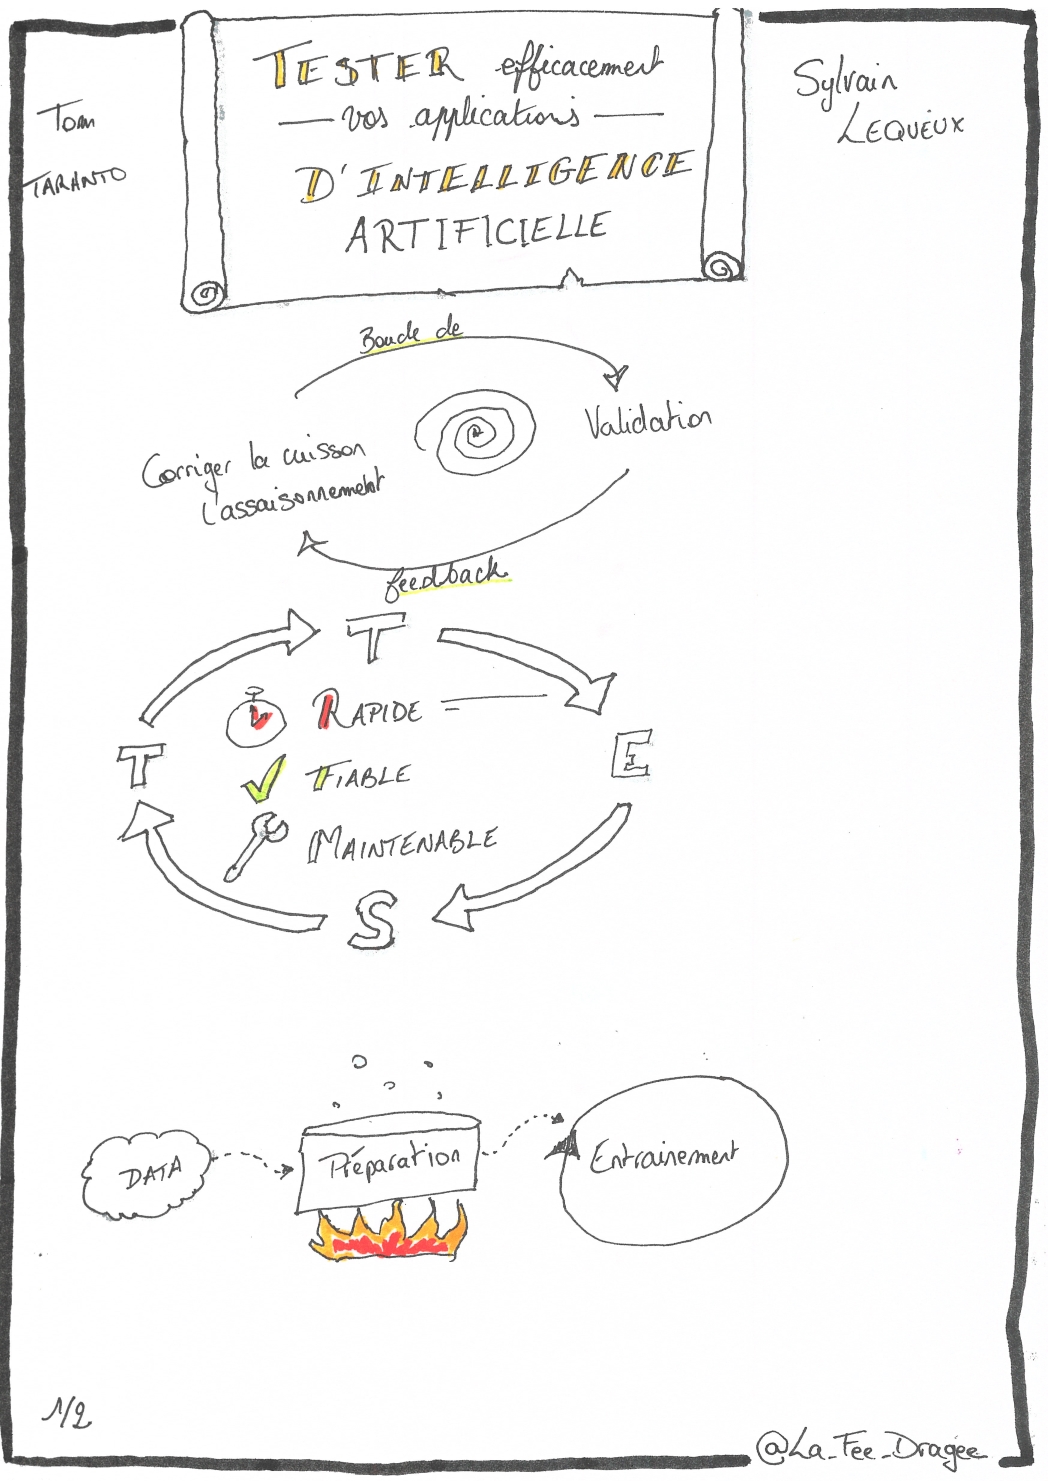 TESTER efficacement
vos applications
D'INTELLIGENCE
ARTIFICIELLE
Tom
TARANTO
Sylvain
LEQUEUX
Boucle de
Validation
Corriger la cuisson
l'assaisonnement
feedback
T
RAPIDE =
T
E
FIABLE
MAINTENABLE
S
DATA
Préparation
Entrainement
1/2
@La_Fee_Dragee_